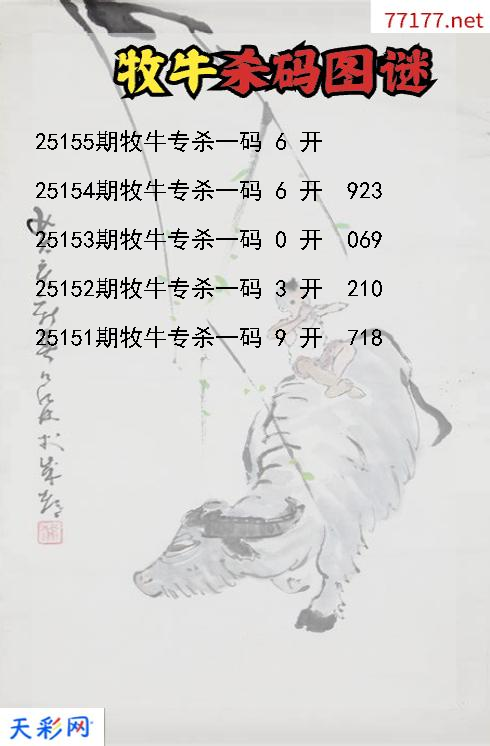 77177.net
牧牛杀码图谜
25155期牧牛专杀一码 6 开
25154期牧牛专杀一码 6 开 923
25153期牧牛专杀一码 0 开 069
25152期牧牛专杀一码 3 开 210
25151期牧牛专杀一码 9 开 718
天彩网